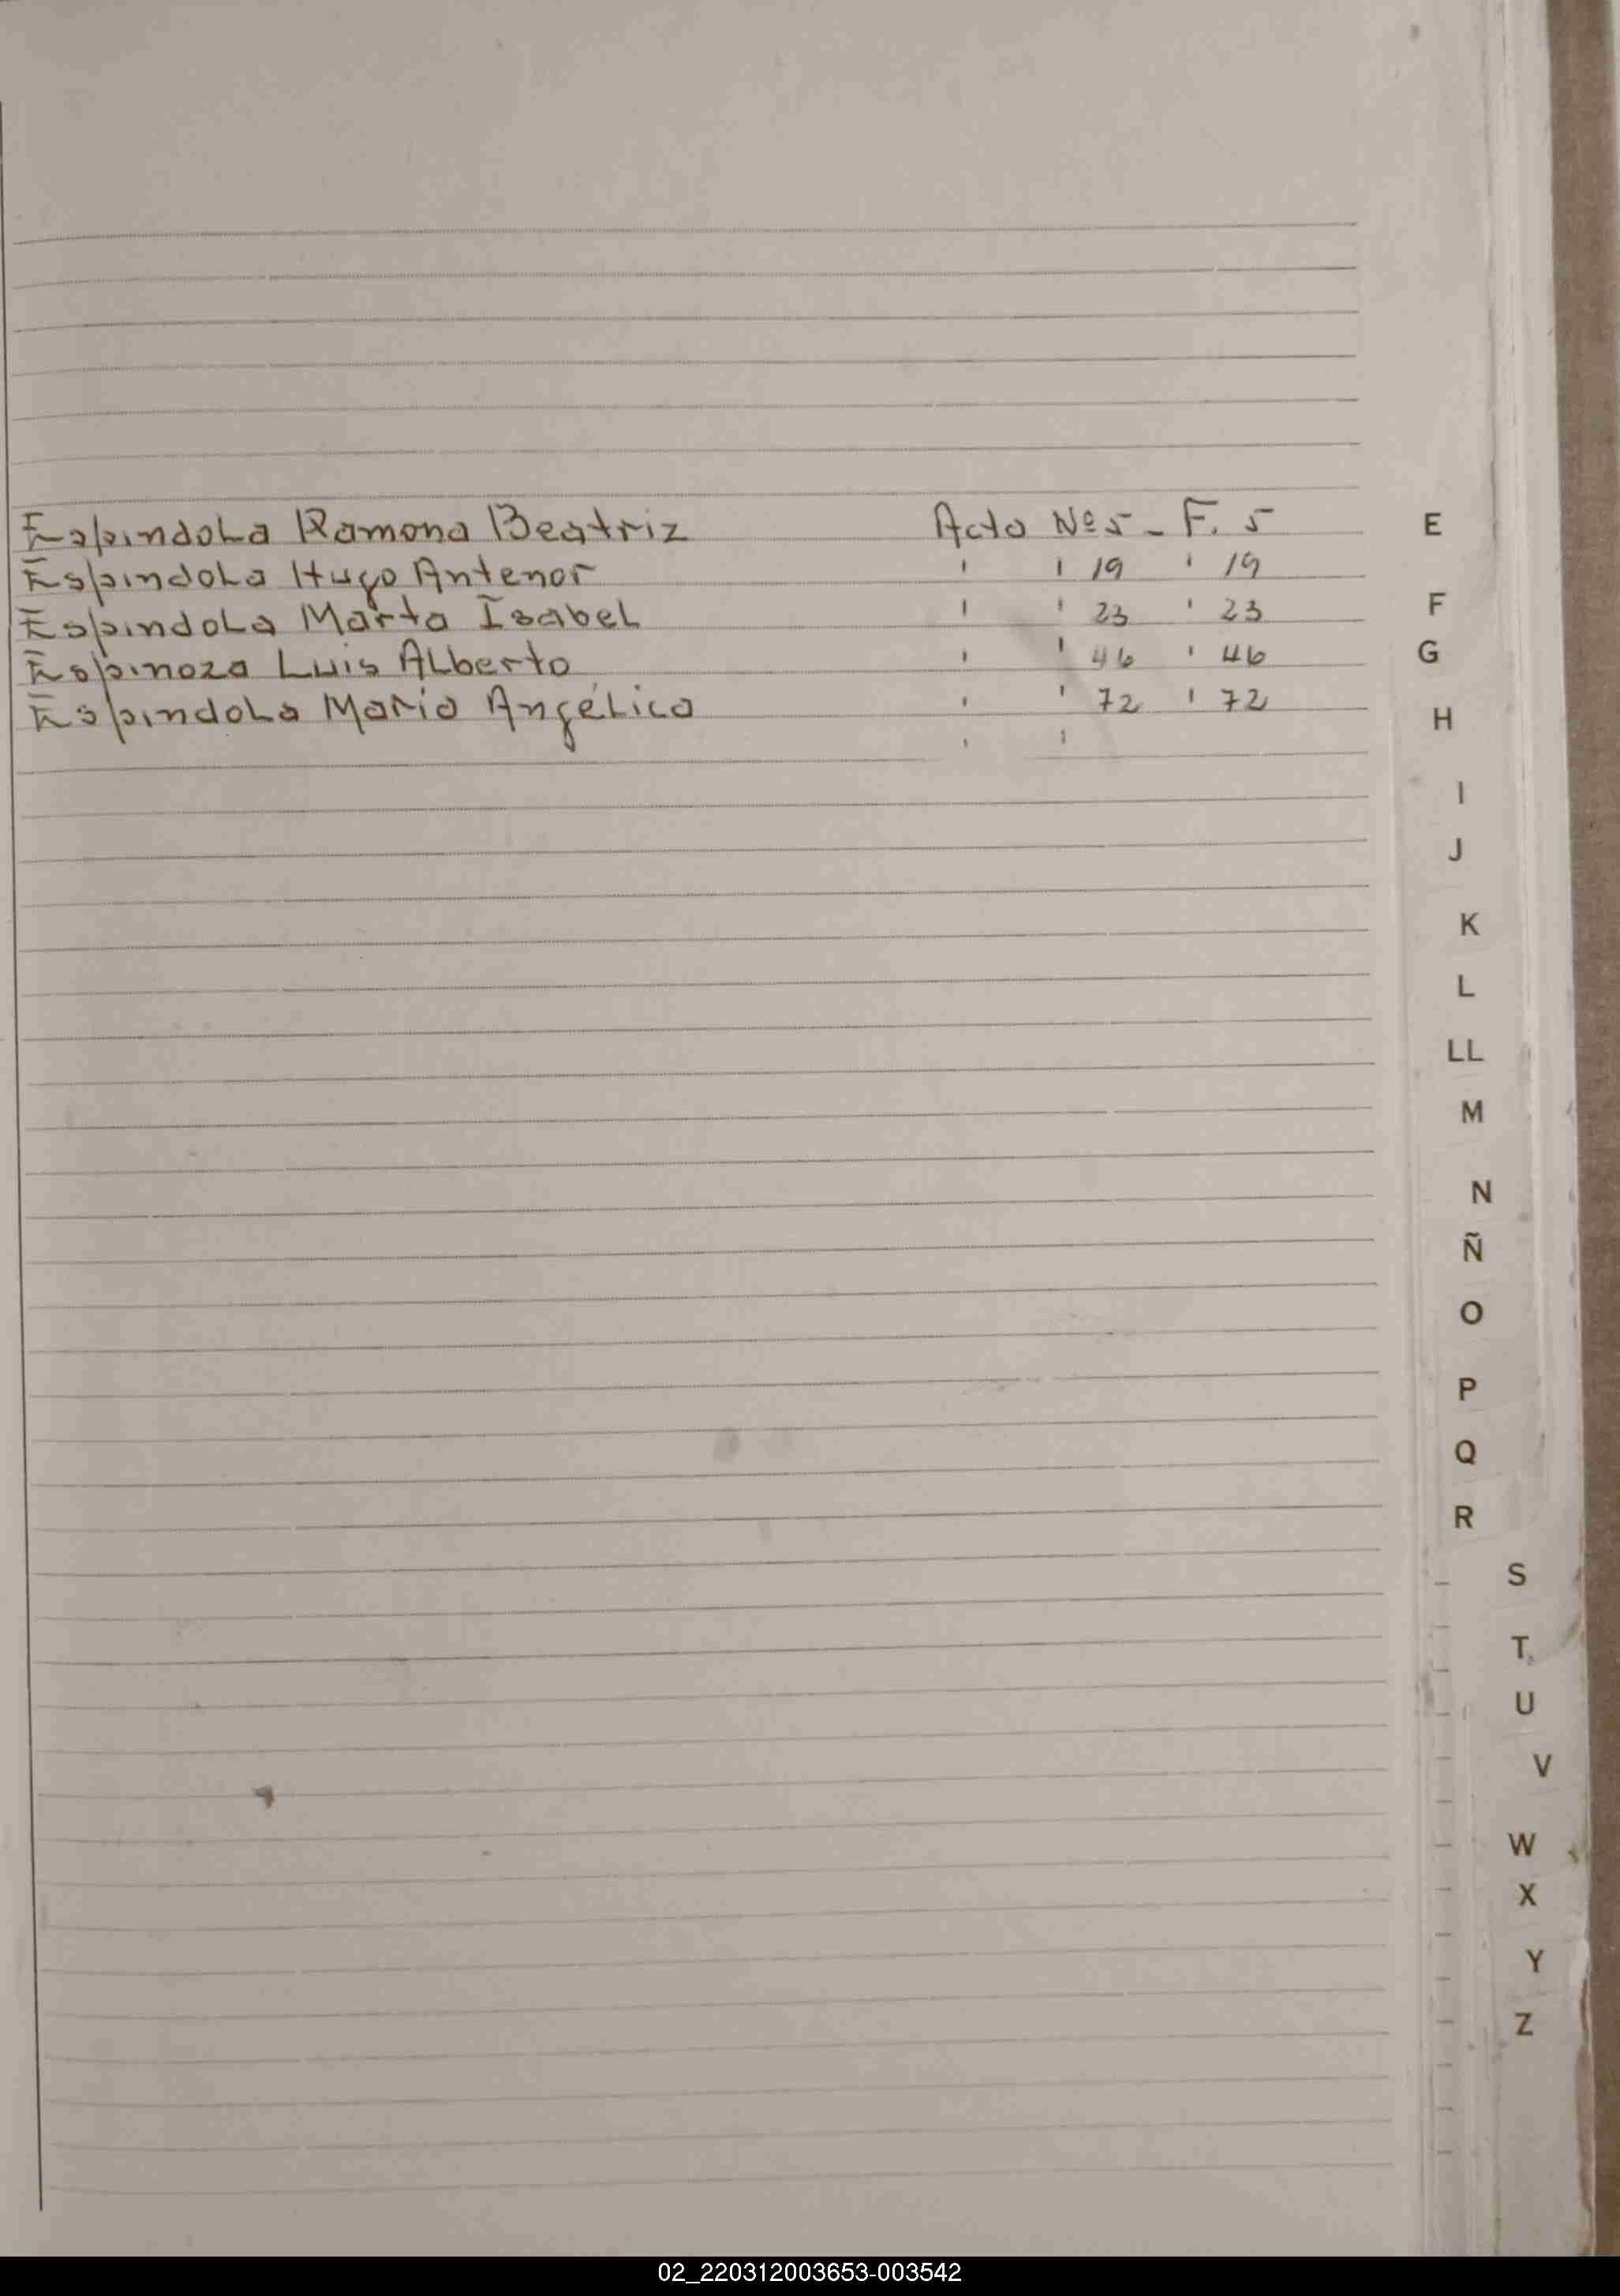 Espindola Ramona Beatriz Acta Nº 5 - F. 5
Espindola Hugo Antenor ' ' 19 ' 19
Espindola Marta Isabel ' ' 23 ' 23
Espinoza Luis Alberto ' ' 46 ' 46
Espindola Maria Angélica ' ' 72 ' 72
' '
E
F
G
H
I
J
K
L
LL
M
N
Ñ
O
P
Q
R
S
T
U
V
W
X
Y
Z
02_220312003653-003542